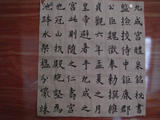 九成宮醴泉銘秘書
監檢校侍中鉅鹿郡
公臣魏徵奉勅撰維
貞觀六年孟夏之月
皇帝避暑乎九成之
宮此則隨之仁壽宮
也冠山抗殿絕壑為
池跨水架楹分巖竦